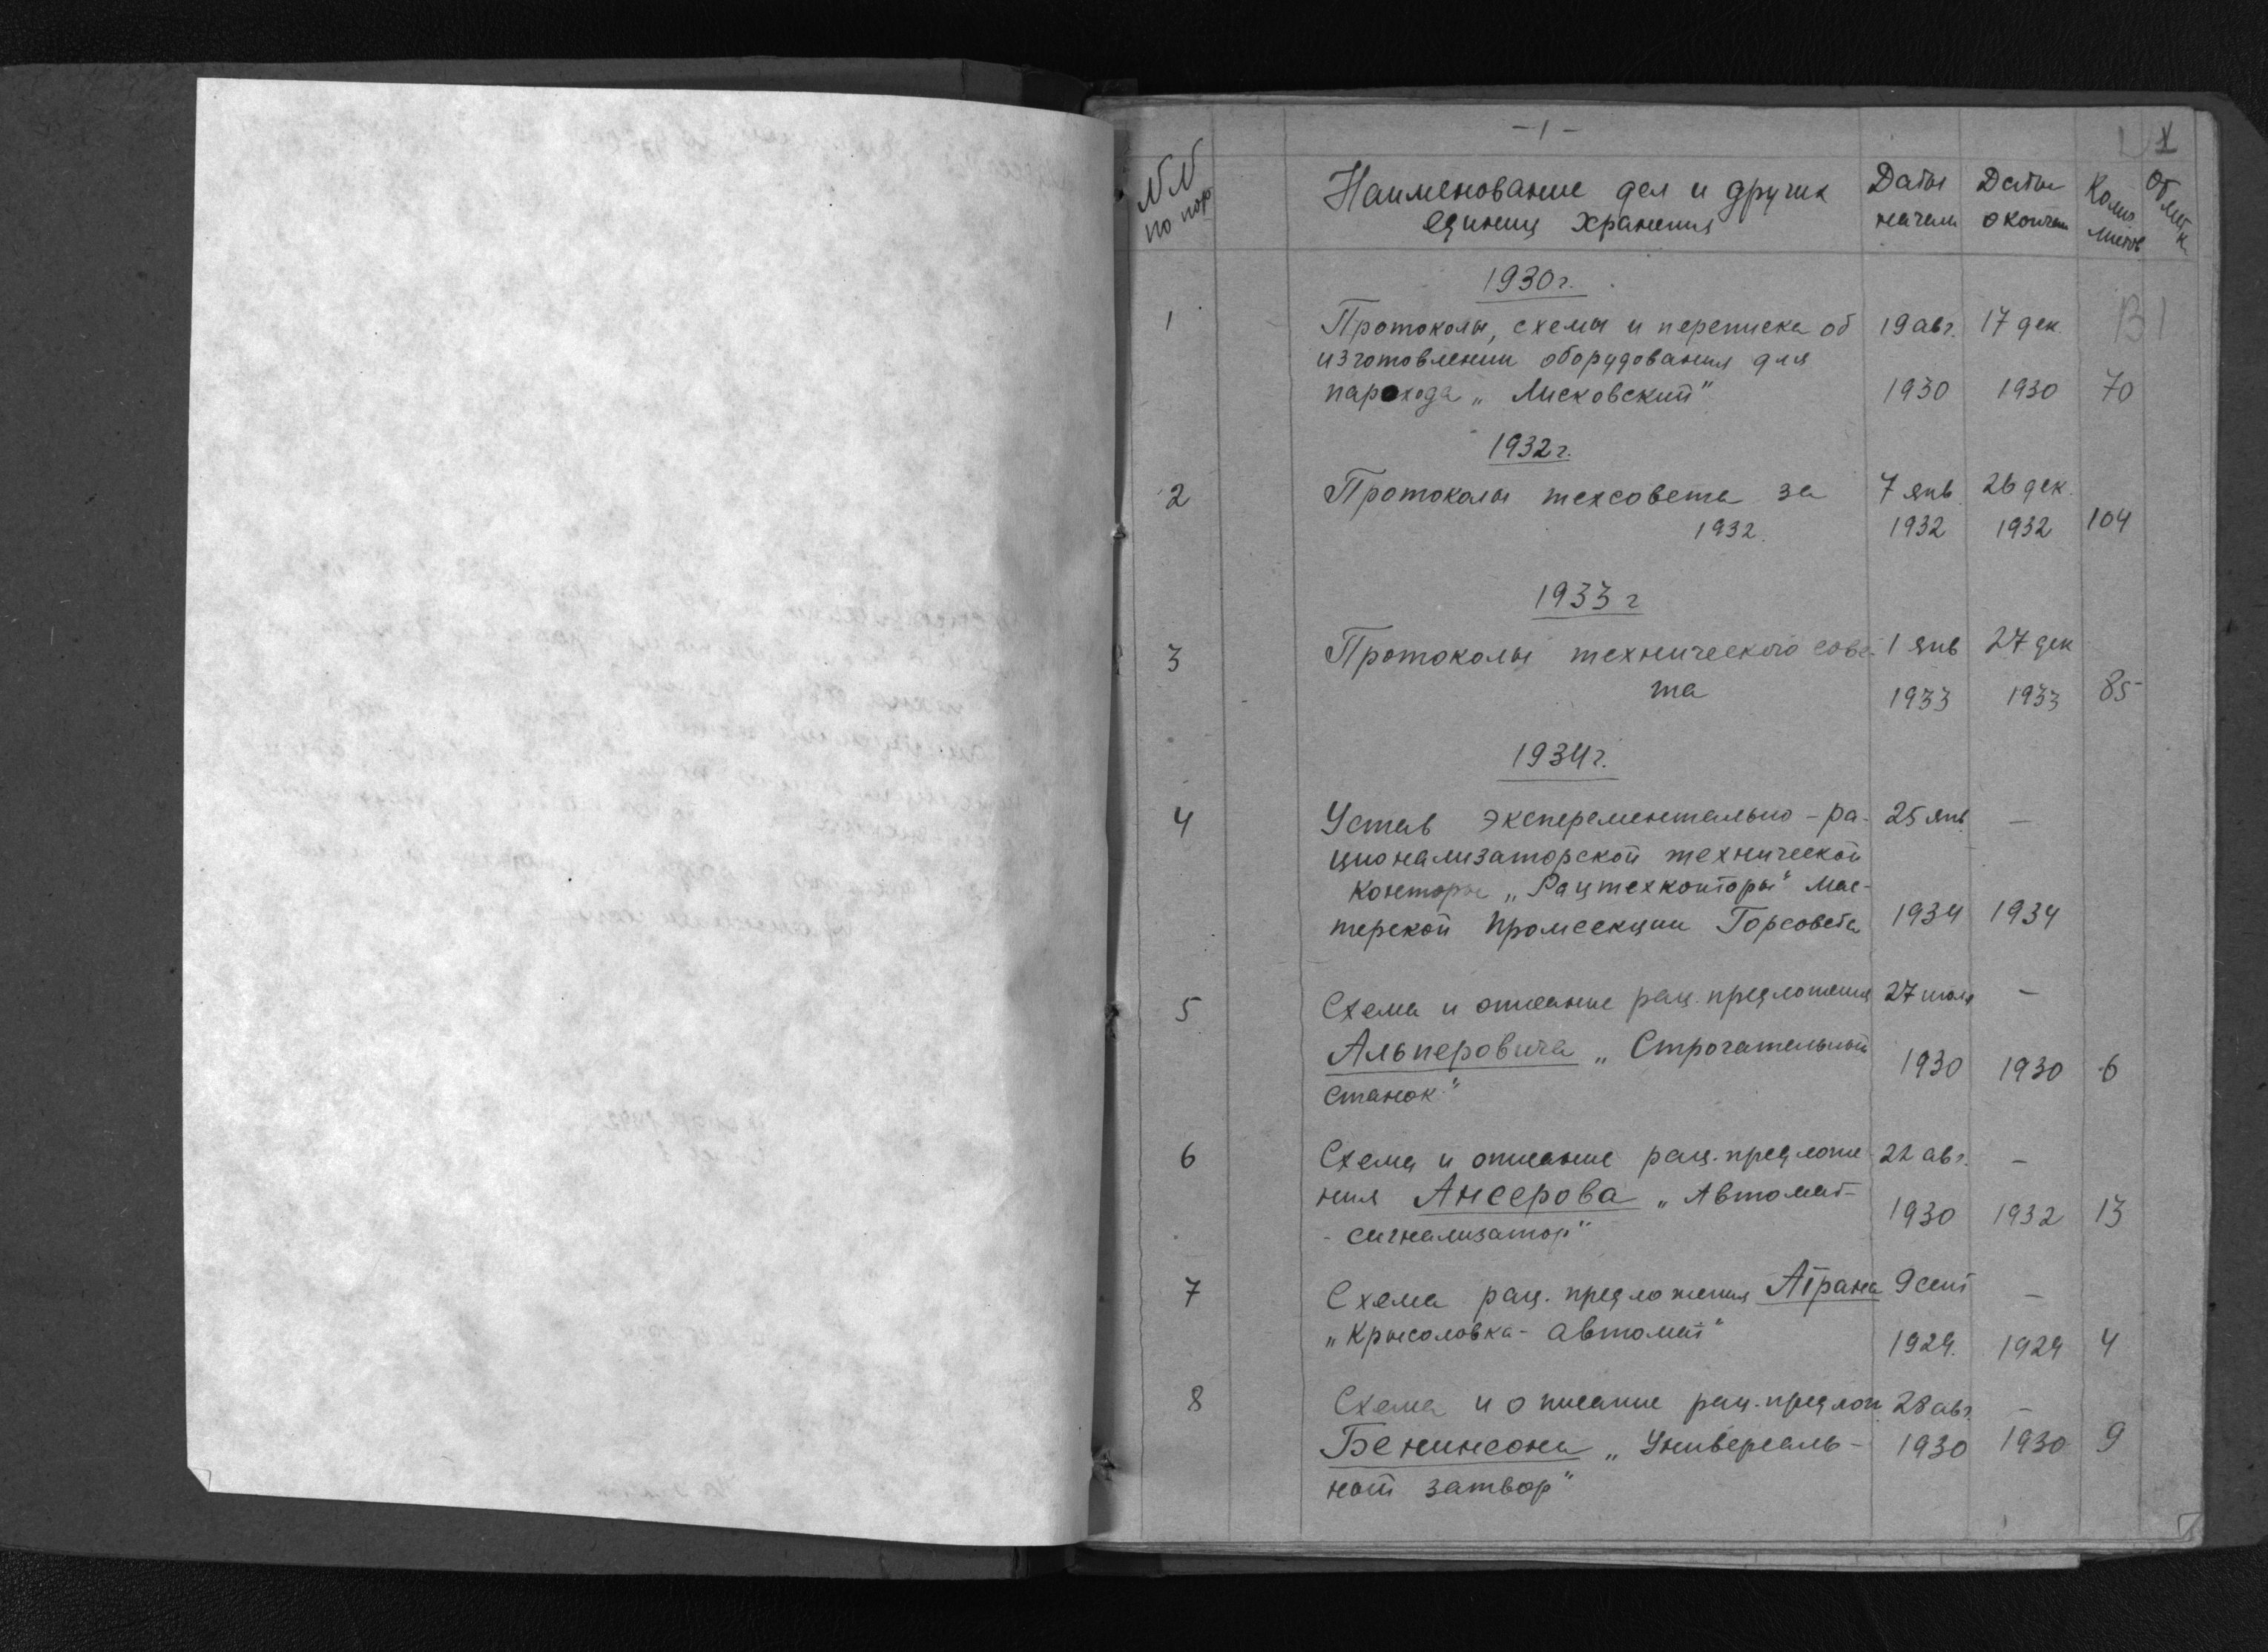 - 1 -
№№ по пор
Наименование дел и других
единиц хранения
Даты
начала
Даты
окончан
Колич
листов
Отметк
1930г.
1 Протоколы, схемы и переписка об 19 авг. 17 дек.
изготовлении оборудования для
парохода „Лисковский" 1930 1930 70
1932г.
2 Протоколы техсовета за 7 янв. 26 дек.
1932. 1932 1932 104
1933 г
3 Протоколы технического сове- 1 янв 27 дек
та 1933 1933 85
1934г.
4 Устав эксперементально-ра- 25 янв. —
ционализаторской технической
конторы „Рацтехконторы" мас-
терской промсекции Горсовета 1934 1934
5 Схема и описание рац. предложения 27 июля —
Альперовича „Строгательный 1930 1930 6
станок"
6 Схема и описание рац. предложе- 22 авг. —
ния Ансерова „Автомат- 1930 1932 13
- сигнализатор"
7 Схема рац. предложения Атрана 9 сент —
„Крысоловка-автомат" 1929. 1929 4
8 Схема и описание рац. предлож. 28 авг. —
Бенинсона „Универсаль- 1930 1930 9
ный затвор"